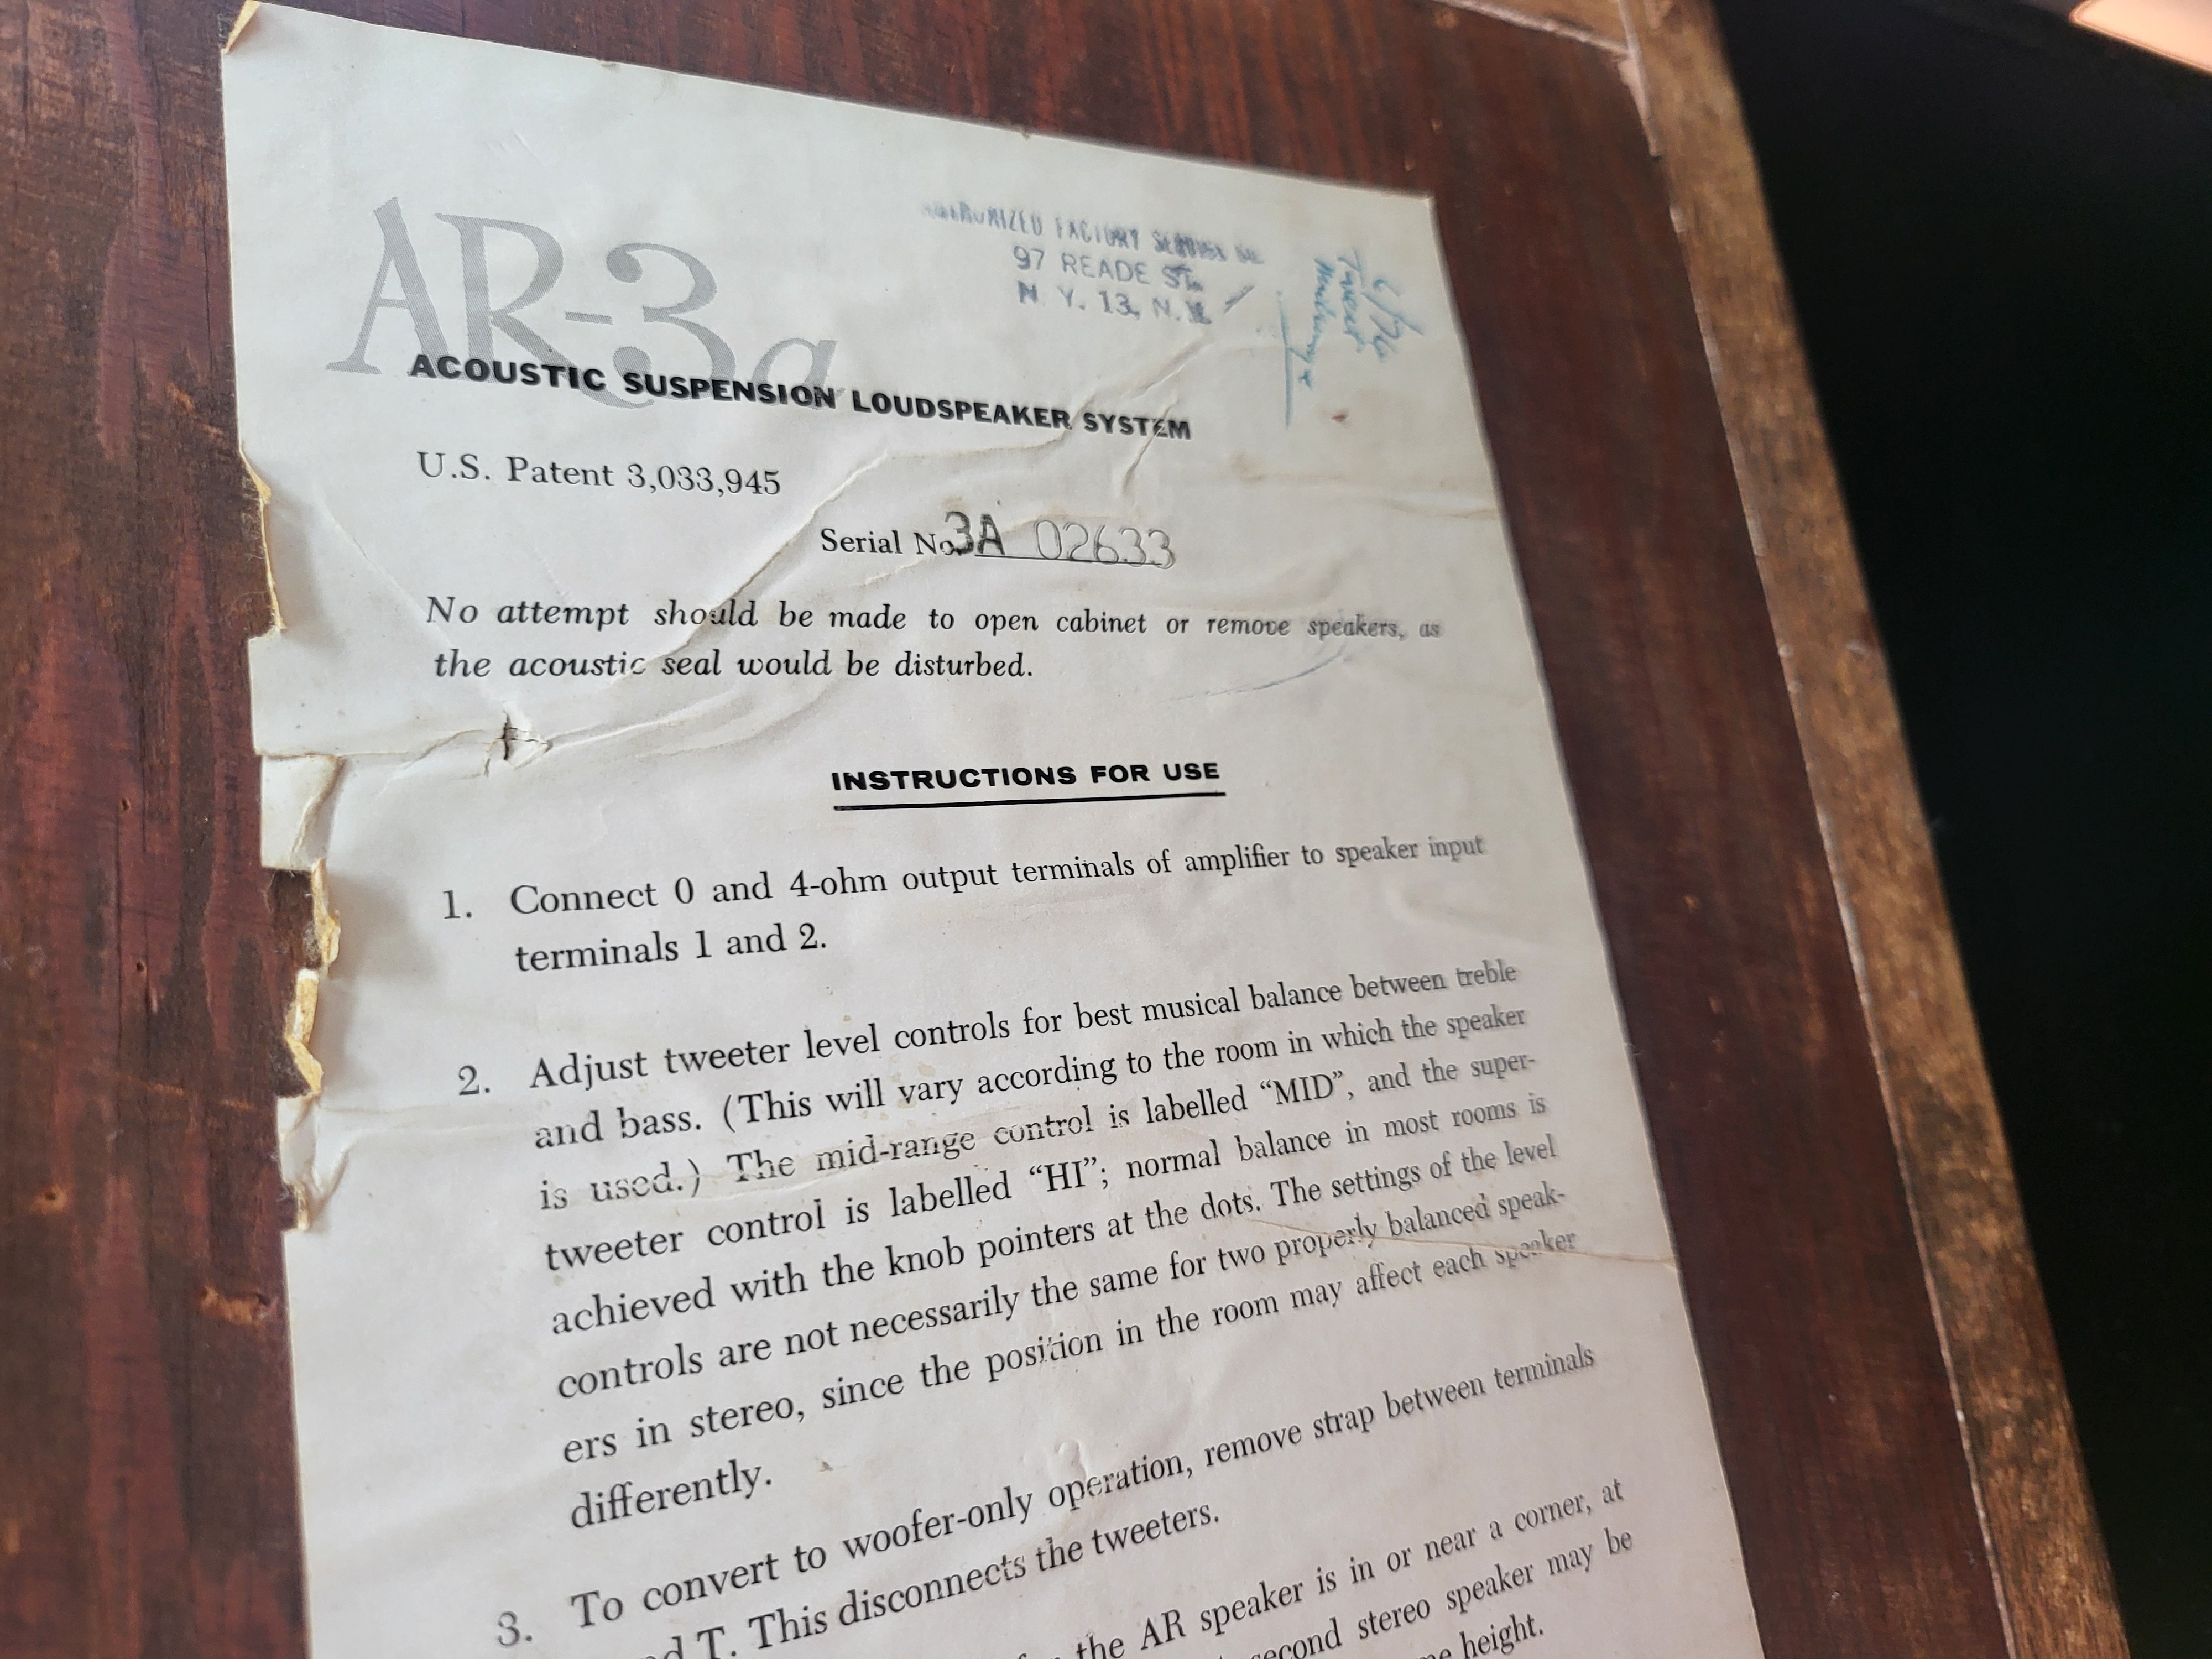 AR-3a
FACTORY
97 READE ST.
N. Y. 13, N.Y.
6/76
Tweet
ACOUSTIC SUSPENSION LOUDSPEAKER SYSTEM
U.S. Patent 3,033,945
Serial No. 3A 02633
No attempt should be made to open cabinet or remove speakers, as
the acoustic seal would be disturbed.
INSTRUCTIONS FOR USE
1. Connect 0 and 4-ohm output terminals of amplifier to speaker input
terminals 1 and 2.
2. Adjust tweeter level controls for best musical balance between treble
and bass. (This will vary according to the room in which the speaker
is used.) The mid-range control is labelled “MID”, and the super-
tweeter control is labelled “HI”; normal balance in most rooms is
achieved with the knob pointers at the dots. The settings of the level
controls are not necessarily the same for two properly balanced speak-
ers in stereo, since the position in the room may affect each speaker
differently.
3. To convert to woofer-only operation, remove strap between terminals
T. This disconnects the tweeters.
the AR speaker is in or near a corner, at
second stereo speaker may be
height.